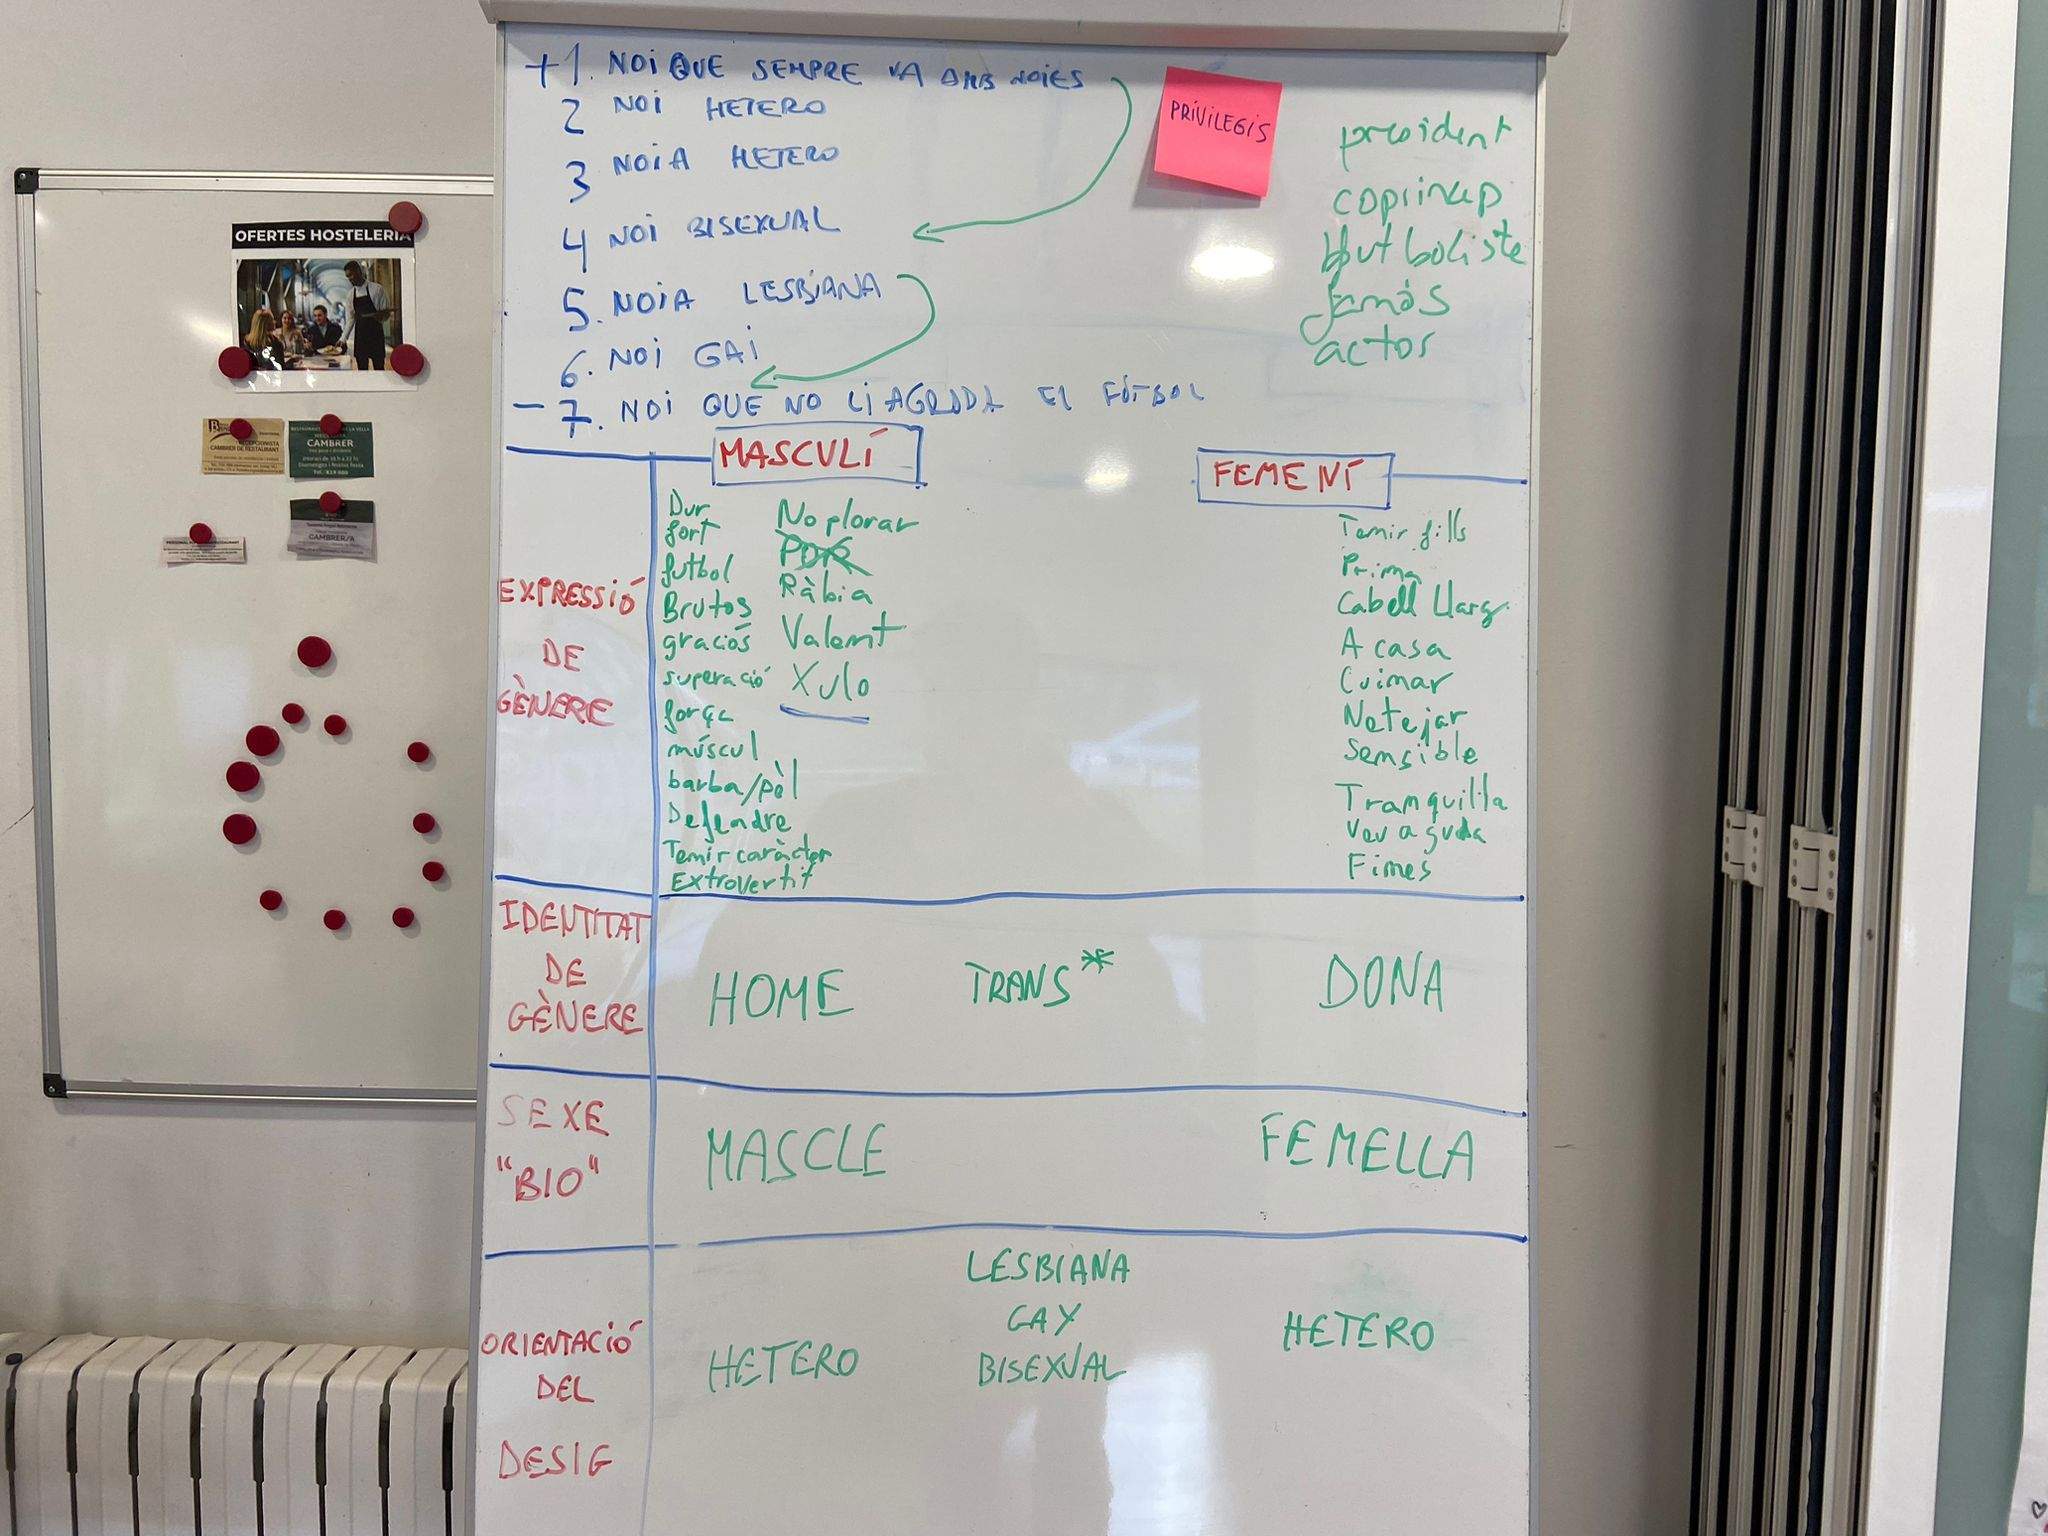 + 1. NOI QUE SEMPRE VA AMB NOIES
2 NOI HETERO
3 NOIA HETERO
4 NOI BISEXUAL
5. NOIA LESBIANA
6. NOI GAI
- 7. NOI QUE NO LI AGRADA EL FÚTBOL
PRIVILEGIS
president
copríncep
futboliste
famós
actor
MASCULÍ
FEMENÍ
EXPRESSIÓ
DE
GÈNERE
Dur
fort
futbol
Brutos
graciós
superació
força
múscul
barba/pèl
Defendre
Tenir caràcter
Extrovertit
No plorar
POR
Ràbia
Valent
Xulo
Tenir fills
Prima
Cabell Llarg
A casa
Cuinar
Netejar
Sensible
Tranquil·la
Veu aguda
Fines
IDENTITAT
DE
GÈNERE
HOME
TRANS*
DONA
SEXE
"BIO"
MASCLE
FEMELLA
ORIENTACIÓ
DEL
DESIG
HETERO
LESBIANA
GAY
BISEXUAL
HETERO
OFERTES HOSTELERIA
RECEPCIONISTA
CAMBRER DE RESTAURANT
CAMBRER
CAMBRER/A